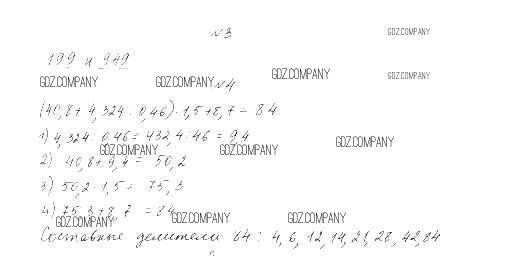 №3
GDZ.COMPANY
199 и 949
GDZ.COMPANY GDZ.COMPANY №4 GDZ.COMPANY GDZ.COMPANY
(40,8 + 4,324 : 0,46) · 1,5 + 8,7 = 84
1) 4,324 : 0,46 = 432,4 : 46 = 9,4
GDZ.COMPANY GDZ.COMPANY GDZ.COMPANY
2) 40,8 + 9,4 = 50,2
3) 50,2 · 1,5 = 75,3
4) 75,3 + 8,7 = 84
GDZ.COMPANY GDZ.COMPANY GDZ.COMPANY
Составные делители 84: 4, 6, 12, 14, 21, 28, 42, 84